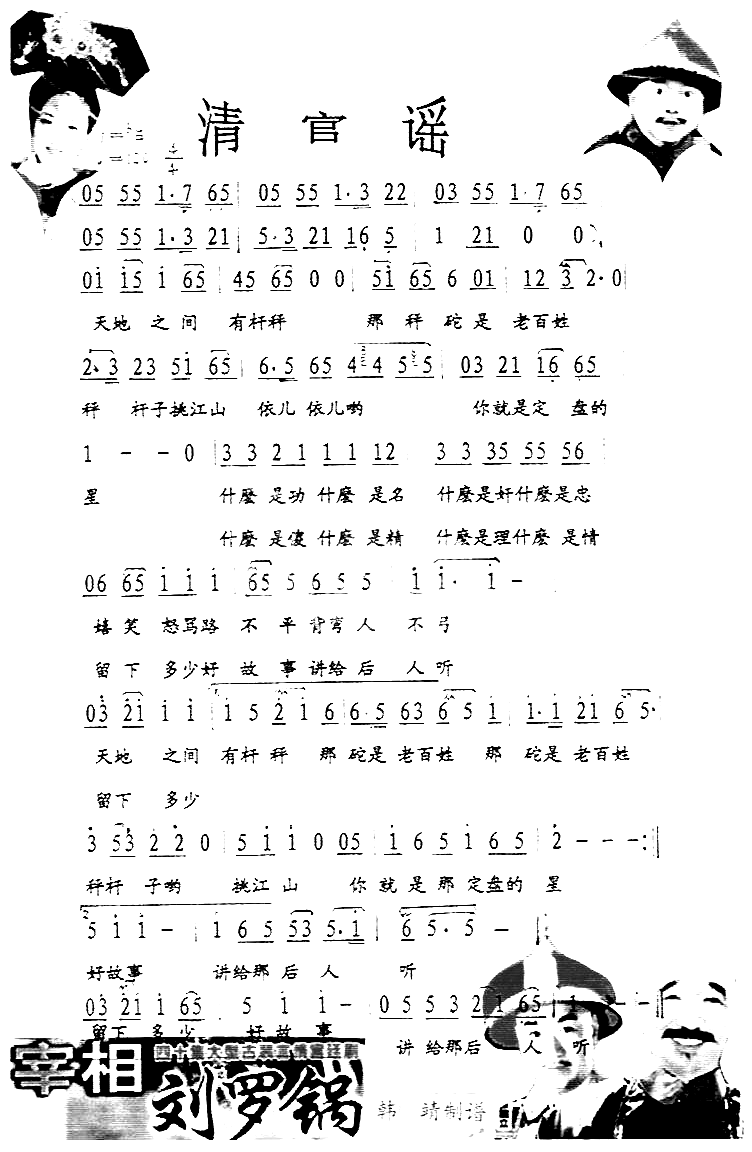 清官谣
05 55 1·7 65 05 55 1·3 22 03 55 1·7 65
05 55 1·3 21 5·3 21 16 5 1 21 0 0
01 15 1 65 45 65 0 0 51 65 6 01 12 3 2·0
天地 之 间 有杆秤 那 秤 砣 是 老百姓
2·3 23 51 65 6·5 65 4 4 5 5 03 21 16 65
秤 杆子挑江山 依儿 依儿哟 你就是定 盘的
1 - - 0 3 3 2 1 1 1 12 3 3 35 55 56
星 什麽 是功 什麽 是名 什麽是奸什麽是忠
什麽 是傻 什麽 是精 什麽是理什麽 是情
06 65 1 1 1 65 5 6 5 5 1 1· 1 -
嬉 笑 怒骂路 不 平 背弯 人 不 弓
留 下 多少好 故 事 讲给 后 人 听
03 21 1 1 1 5 2 1 6 6·5 63 6 5 1 1·1 21 6 5·
天地 之间 有杆 秤 那 砣是 老百姓 那 砣是 老百姓
留下 多少
3 53 2 2 0 5 1 1 0 05 1 6 5 1 6 5 2 - - - :‖
秤杆 子哟 挑江 山 你 就 是 那 定盘的 星
5 1 1 - 1 6 5 53 5·1 6 5·5 -
好故事 讲给那 后 人 听
03 21 1 65 5 1 1 - 0 5 5 3 2 1 65 1 -
留下 多少 好 故 事 讲 给那后 人 听
四十集大型古装剧情宫廷剧
宰相
刘罗锅
韩 靖制谱